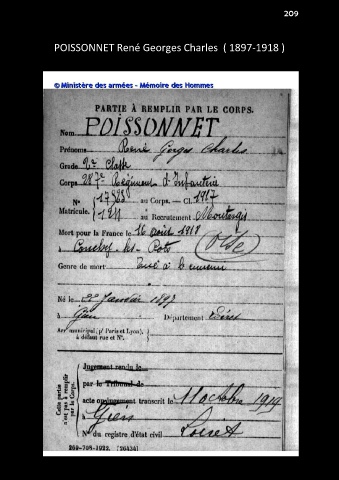 209
POISSONNET René Georges Charles ( 1897-1918 )
© Ministère des armées - Mémoire des Hommes
PARTIE À REMPLIR PAR LE CORPS.
Nom POISSONNET
Prénoms René Georges Charles
Grade 2e Classe
Corps 287e Régiment d'Infanterie
N° 17363 au Corps. — Cl. 1917
Matricule. 1211 au Recrutement Montargis
Mort pour la France le 16 août 1918
à Conchy les Pots Oise
Genre de mort Tué à l'ennemi
Né le Janvier 1897
à Gien Département Loiret
Arr^t municipal (p^r Paris et Lyon), à défaut rue et N°.
Jugement rendu le
par le Tribunal de
acte ou jugement transcrit le 11 octobre 1919
à Gien Loiret
N° du registre d'état civil
Cette partie n'est pas à remplir par le Corps.
269-708-1922. [26434]